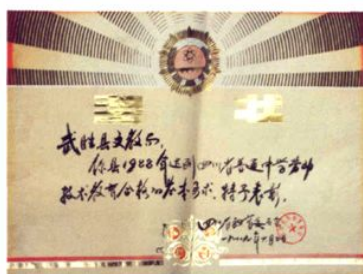 奖 状
武胜县文教局
你县1988年达到四川省普通中学劳动
技术教育合格的基本要求,特予表彰。
四川省教育委员会